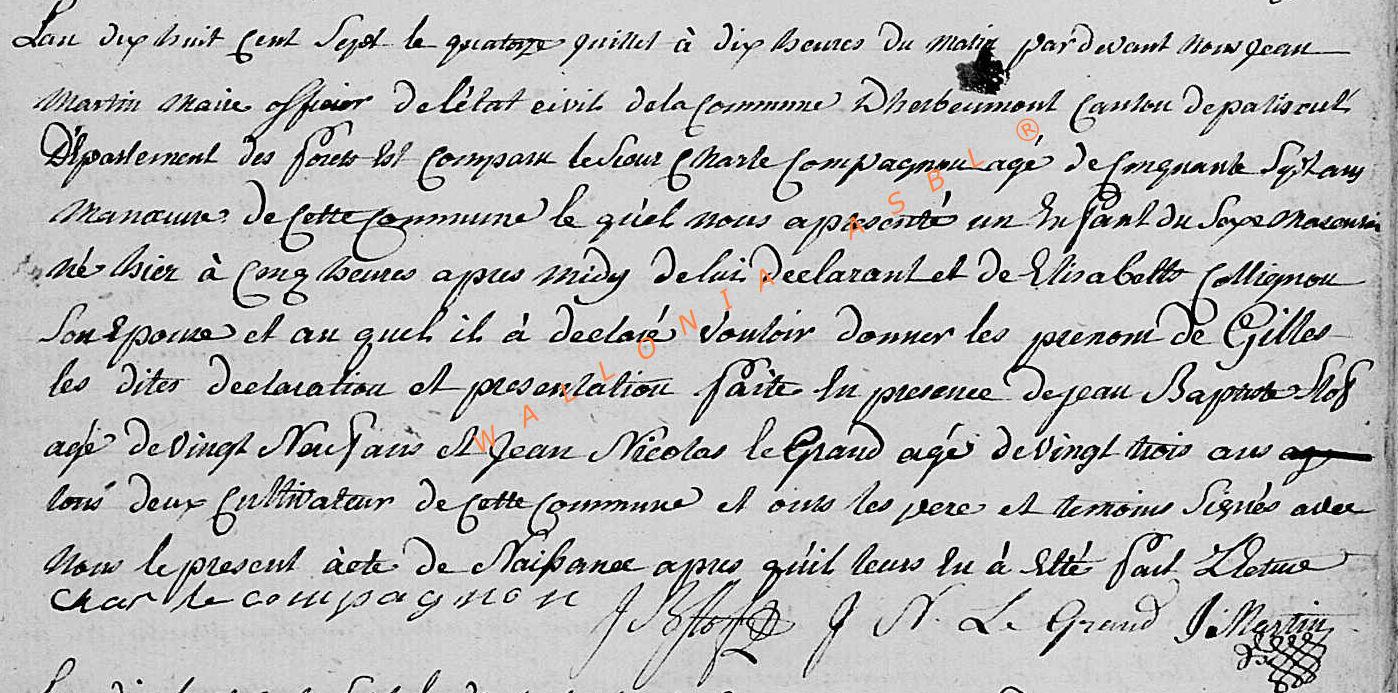 Lan dix huit cent Sept le quatorze juillet à dix heures du matin par devant nous jean
Martin Maire officier de létat civil de la commune Dherbeumont Canton de paliseul
Département des forets Est comparu le Sieur Charle Compagnon agé de cinquante Sept ans
Manœuvre de cette commune le quel nous a presenté un Enfant du Sexe Masculin
né hier à cinq heures apres midy de lui declarant et de Elisabeth Collignon
Son Epouse et au quel il à declaré vouloir donner les prenom de Gilles
les dites declaration et presentation faite En presence de jean Baptiste Stof
agé de vingt Neuf ans et Jean Nicolas le Grand agé de vingt trois ans
tous deux Cultivateur de cette commune et onts les pere et temoins Signés avec
Nous le present àcte de Naissance apres qu'il leurs En à Etté fait Lecture
Char le compagnon J B Stof J N. Le Grand J. Martin
WALLONIA ASBL ®